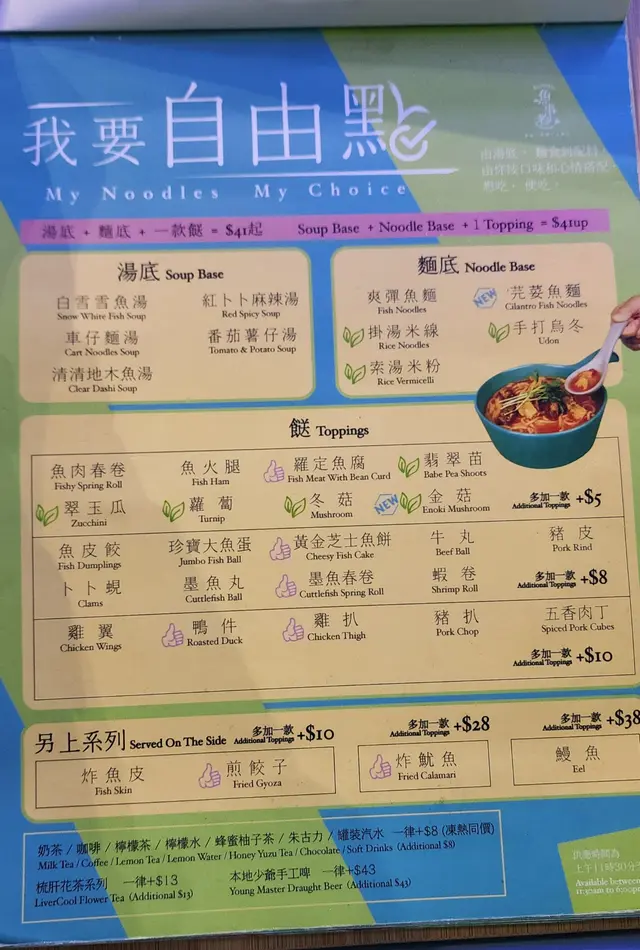 我要自由點
My Noodles My Choice
湯底 + 麵底 + 一款餸 = $41起 Soup Base + Noodle Base + 1 Topping = $41up
湯底 Soup Base
白雪雪魚湯 紅卜卜麻辣湯
Snow White Fish Soup Red Spicy Soup
車仔麵湯 番茄薯仔湯
Cart Noodles Soup Tomato & Potato Soup
清清地木魚湯
Clear Dashi Soup
麵底 Noodle Base
爽彈魚麵 NEW 芫荽魚麵
Fish Noodles Cilantro Fish Noodles
掛湯米線 手打烏冬
Rice Noodles Udon
索湯米粉
Rice Vermicelli
餸 Toppings
魚肉春卷 魚火腿 羅定魚腐 翡翠苗
Fishy Spring Roll Fish Ham Fish Meat With Bean Curd Babe Pea Shoots
翠玉瓜 蘿蔔 冬菇 NEW 金菇 多加一款 +$5
Zucchini Turnip Mushroom Enoki Mushroom Additional Toppings
魚皮餃 珍寶大魚蛋 黃金芝士魚餅 牛丸 豬皮
Fish Dumplings Jumbo Fish Ball Cheesy Fish Cake Beef Ball Pork Rind
卜卜蜆 墨魚丸 墨魚春卷 蝦卷 多加一款 +$8
Clams Cuttlefish Ball Cuttlefish Spring Roll Shrimp Roll Additional Toppings
雞翼 鴨件 雞扒 豬扒 五香肉丁
Chicken Wings Roasted Duck Chicken Thigh Pork Chop Spiced Pork Cubes
多加一款 +$10
Additional Toppings
另上系列 Served On The Side 多加一款 Additional Toppings +$10
炸魚皮 煎餃子
Fish Skin Fried Gyoza
多加一款 Additional Toppings +$28
炸魷魚
Fried Calamari
多加一款 Additional Toppings +$38
鰻魚
Eel
奶茶 / 咖啡 / 檸檬茶 / 檸檬水 / 蜂蜜柚子茶 / 朱古力 / 罐裝汽水 一律+$8 (凍熱同價)
Milk Tea / Coffee / Lemon Tea / Lemon Water / Honey Yuzu Tea / Chocolate / Soft Drinks (Additional $8)
梳肝花茶系列 一律+$13 本地少爺手工啤 一律+$43
LiverCool Flower Tea (Additional $13) Young Master Draught Beer (Additional $43)
供應時間為
上午11時30分
Available between
11:30am to 6:00pm